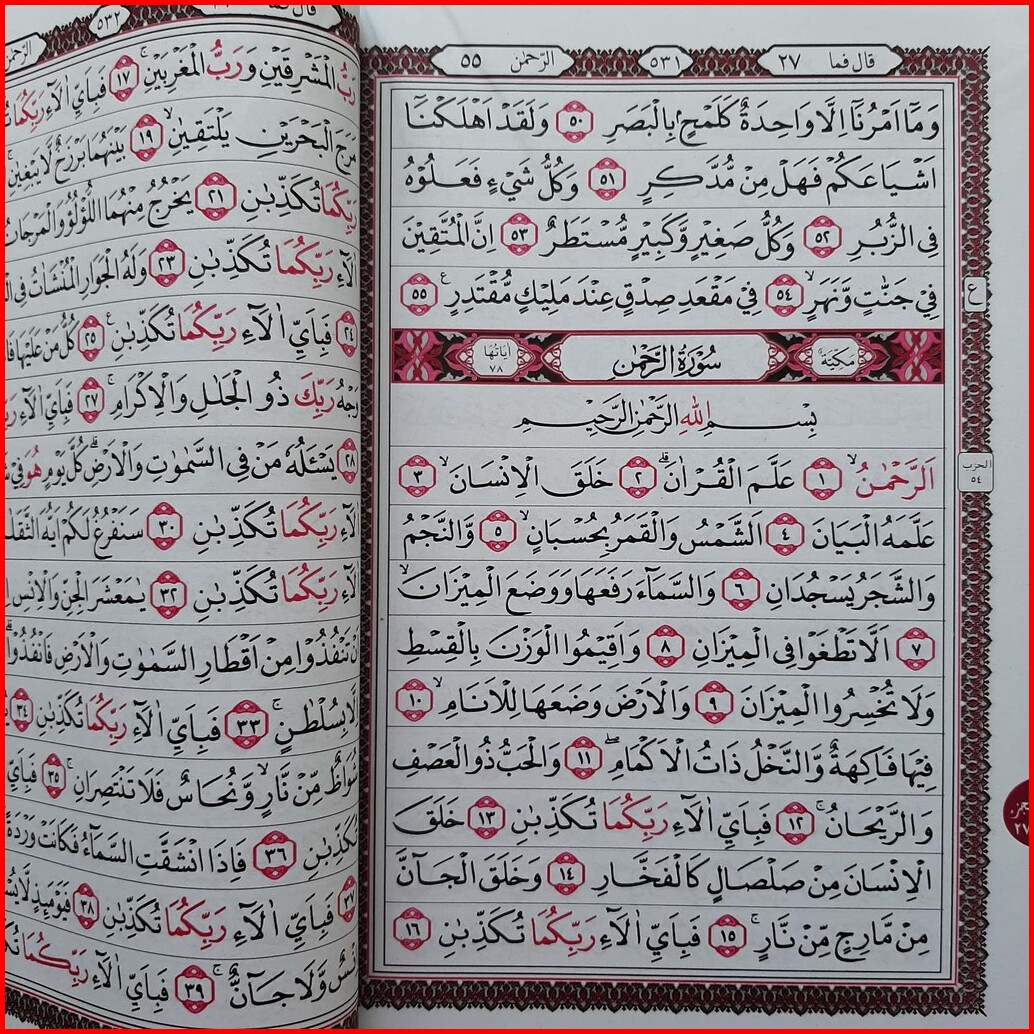 قال فما ٢٧
٥٣١
الرّحمٰن ٥٥
وَمَٓا اَمْرُنَٓا اِلَّا وَاحِدَةٌ كَلَمْحٍ بِالْبَصَرِ ﴿٥٠﴾ وَلَقَدْ اَهْلَكْنَٓا
اَشْيَاعَكُمْ فَهَلْ مِنْ مُّدَّكِرٍ ﴿٥١﴾ وَكُلُّ شَيْءٍ فَعَلُوْهُ
فِى الزُّبُرِ ﴿٥٢﴾ وَكُلُّ صَغِيْرٍ وَّكَبِيْرٍ مُّسْتَطَرٌ ﴿٥٣﴾ اِنَّ الْمُتَّقِيْنَ
فِيْ جَنّٰتٍ وَّنَهَرٍۙ ﴿٥٤﴾ فِيْ مَقْعَدِ صِدْقٍ عِنْدَ مَلِيْكٍ مُّقْتَدِرٍࣖ ﴿٥٥﴾
ع
مَكِّيَّة
سُوْرَةُ الرَّحْمٰنِ
اٰيَاتُهَا ٧٨
بِسْمِ اللّٰهِ الرَّحْمٰنِ الرَّحِيْمِ
اَلرَّحْمٰنُۙ ﴿١﴾ عَلَّمَ الْقُرْاٰنَۗ ﴿٢﴾ خَلَقَ الْاِنْسَانَۙ ﴿٣﴾
الحزب ٥٤
عَلَّمَهُ الْبَيَانَ ﴿٤﴾ اَلشَّمْسُ وَالْقَمَرُ بِحُسْبَانٍۙ ﴿٥﴾ وَّالنَّجْمُ
وَالشَّجَرُ يَسْجُدَانِ ﴿٦﴾ وَالسَّمَآءَ رَفَعَهَا وَوَضَعَ الْمِيْزَانَۙ
﴿٧﴾ اَلَّا تَطْغَوْا فِى الْمِيْزَانِ ﴿٨﴾ وَاَقِيْمُوا الْوَزْنَ بِالْقِسْطِ
وَلَا تُخْسِرُوا الْمِيْزَانَ ﴿٩﴾ وَالْاَرْضَ وَضَعَهَا لِلْاَنَامِۙ ﴿١٠﴾
فِيْهَا فَاكِهَةٌ وَّالنَّخْلُ ذَاتُ الْاَكْمَامِۖ ﴿١١﴾ وَالْحَبُّ ذُو الْعَصْفِ
وَالرَّيْحَانُۚ ﴿١٢﴾ فَبِاَيِّ اٰلَآءِ رَبِّكُمَا تُكَذِّبٰنِ ﴿١٣﴾ خَلَقَ
الْاِنْسَانَ مِنْ صَلْصَالٍ كَالْفَخَّارِ ﴿١٤﴾ وَخَلَقَ الْجَآنَّ
مِنْ مَّارِجٍ مِّنْ نَّارٍۚ ﴿١٥﴾ فَبِاَيِّ اٰلَآءِ رَبِّكُمَا تُكَذِّبٰنِ ﴿١٦﴾
٢٧
قال فما
٥٣٢
رَبُّ الْمَشْرِقَيْنِ وَرَبُّ الْمَغْرِبَيْنِۚ ﴿١٧﴾ فَبِاَيِّ اٰلَآءِ رَبِّكُمَا
مَرَجَ الْبَحْرَيْنِ يَلْتَقِيٰنِۙ ﴿١٩﴾ بَيْنَهُمَا بَرْزَخٌ لَّا يَبْغِيٰنِۚ
رَبِّكُمَا تُكَذِّبٰنِ ﴿٢١﴾ يَخْرُجُ مِنْهُمَا اللُّؤْلُؤُ وَالْمَرْجَانُ
اٰلَآءِ رَبِّكُمَا تُكَذِّبٰنِ ﴿٢٣﴾ وَلَهُ الْجَوَارِ الْمُنْشَاٰتُ فِى
﴿٢٤﴾ فَبِاَيِّ اٰلَآءِ رَبِّكُمَا تُكَذِّبٰنِࣖ ﴿٢٥﴾ كُلُّ مَنْ عَلَيْهَا
وَجْهُ رَبِّكَ ذُو الْجَلٰلِ وَالْاِكْرَامِۚ ﴿٢٧﴾ فَبِاَيِّ اٰلَآءِ
﴿٢٨﴾ يَسْـَٔلُهٗ مَنْ فِى السَّمٰوٰتِ وَالْاَرْضِۗ كُلَّ يَوْمٍ هُوَ فِيْ
اٰلَآءِ رَبِّكُمَا تُكَذِّبٰنِ ﴿٣٠﴾ سَنَفْرُغُ لَكُمْ اَيُّهَ
اٰلَآءِ رَبِّكُمَا تُكَذِّبٰنِ ﴿٣٢﴾ يٰمَعْشَرَ الْجِنِّ وَالْاِنْسِ
تَنْفُذُوْا مِنْ اَقْطَارِ السَّمٰوٰتِ وَالْاَرْضِ فَانْفُذُوْاۗ
اِلَّا بِسُلْطٰنٍۚ ﴿٣٣﴾ فَبِاَيِّ اٰلَآءِ رَبِّكُمَا تُكَذِّبٰنِ ﴿٣٤﴾
شُوَاظٌ مِّنْ نَّارٍۙ وَّنُحَاسٌ فَلَا تَنْتَصِرَانِۚ ﴿٣٥﴾ فَبِاَيِّ
تُكَذِّبٰنِ ﴿٣٦﴾ فَاِذَا انْشَقَّتِ السَّمَآءُ فَكَانَتْ وَرْدَةً
﴿٣٧﴾ فَبِاَيِّ اٰلَآءِ رَبِّكُمَا تُكَذِّبٰنِ ﴿٣٨﴾ فَيَوْمَىِٕذٍ
اِنْسٌ وَّلَا جَآنٌّۚ ﴿٣٩﴾ فَبِاَيِّ اٰلَآءِ رَبِّكُمَا